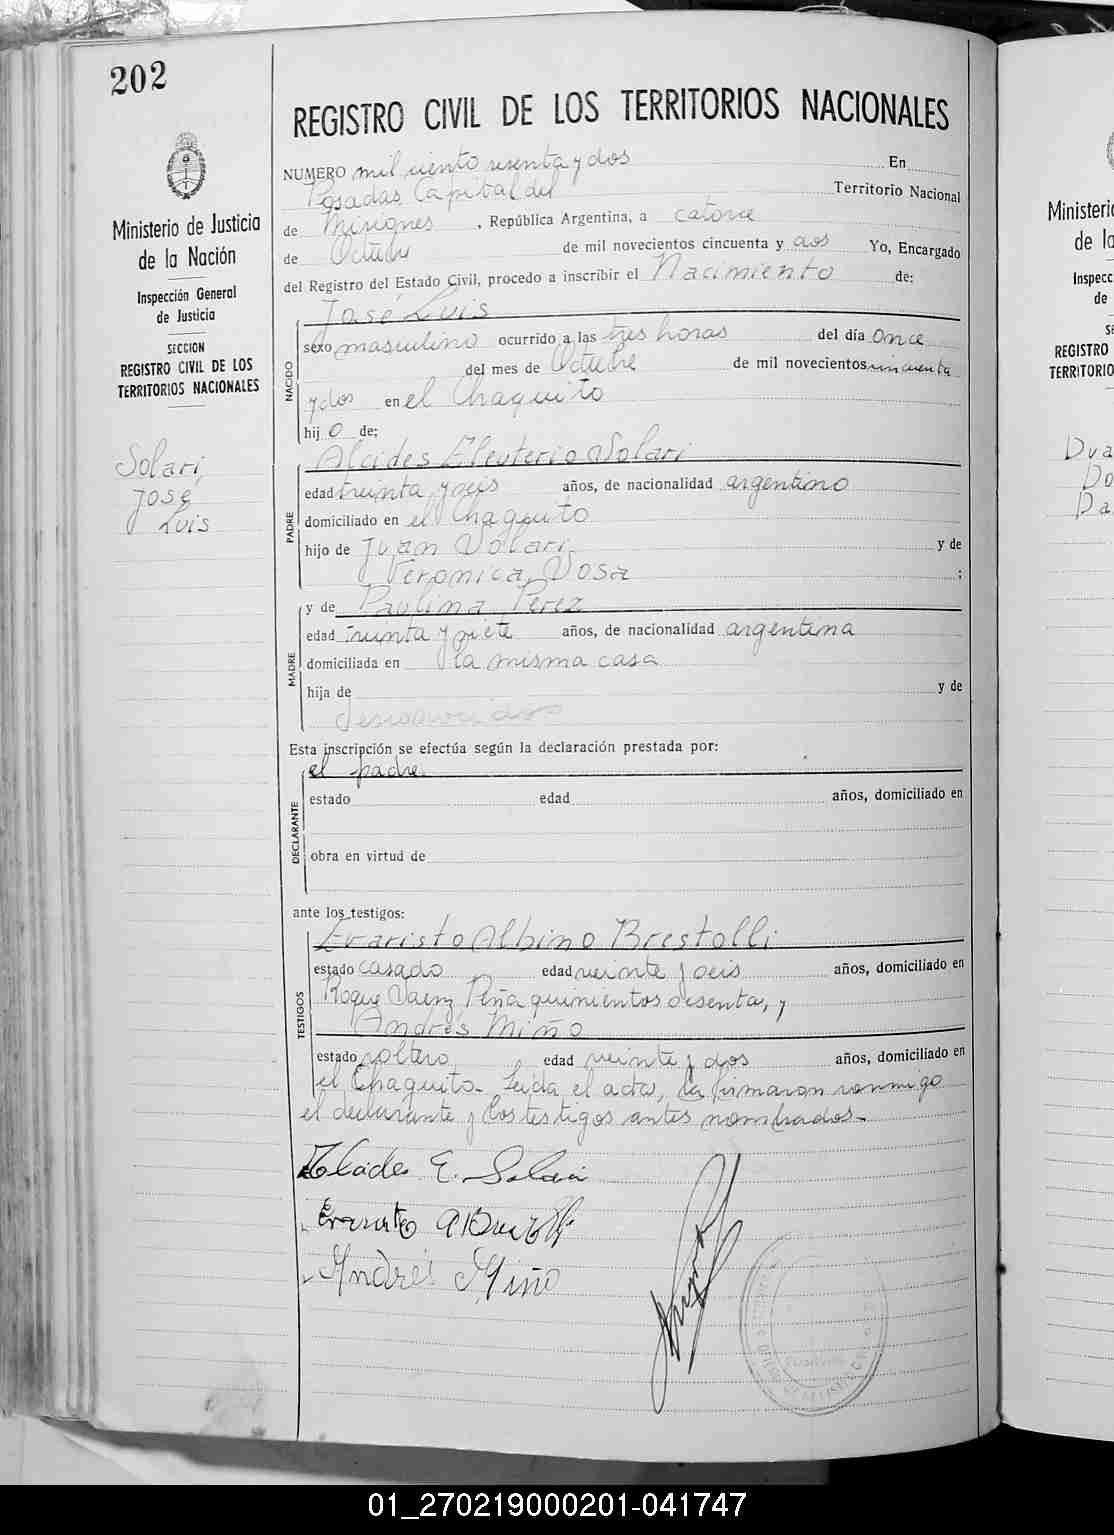 202
REGISTRO CIVIL DE LOS TERRITORIOS NACIONALES
Ministerio de Justicia
de la Nación
Inspección General
de Justicia
SECCION
REGISTRO CIVIL DE LOS
TERRITORIOS NACIONALES
Solari,
José
Luis
NUMERO mil ciento sesenta y dos En
Posadas Capital del Territorio Nacional
de Misiones, República Argentina, a catorce
de Octubre de mil novecientos cincuenta y dos Yo, Encargado
del Registro del Estado Civil, procedo a inscribir el Nacimiento de:
NACIDO
José Luis
sexo masculino ocurrido a las tres horas del día once
del mes de Octubre de mil novecientos cincuenta
y dos en el Chaquito
hijo de:
PADRE
Alcides Eleuterio Solari
edad treinta y seis años, de nacionalidad argentino
domiciliado en el Chaquito
hijo de Juan Solari y de
Veronica Sosa ;
MADRE
y de Paulina Perez
edad treinta y siete años, de nacionalidad argentina
domiciliada en la misma casa
hija de y de
desconocidos
Esta inscripción se efectúa según la declaración prestada por:
DECLARANTE
el padre
estado edad años, domiciliado en
obra en virtud de
ante los testigos:
TESTIGOS
Evaristo Albino Brestolli
estado casado edad veinte y seis años, domiciliado en
Roque Saenz Peña quinientos sesenta, y
Andrés Miño
estado soltero edad veinte y dos años, domiciliado en
el Chaquito. Leida el acta, la firmaron conmigo
el declarante y los testigos antes nombrados.
Alcides E. Solari
Evaristo A
Andrés Miño
Ministerio
de la
REGISTRO
Dua
Do
Da
01_270219000201-041747